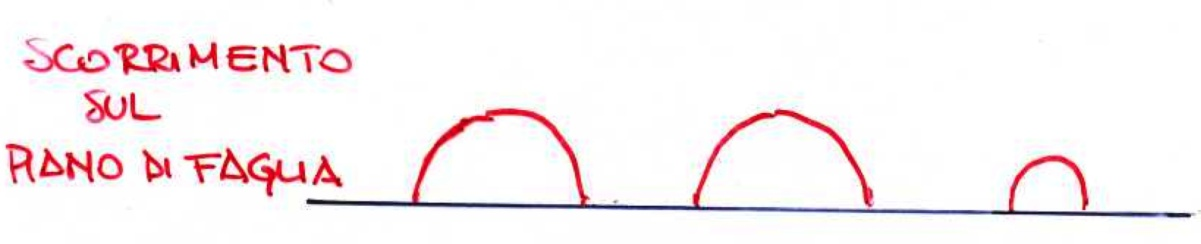 SCORRIMENTO
SUL
PIANO DI FAGLIA